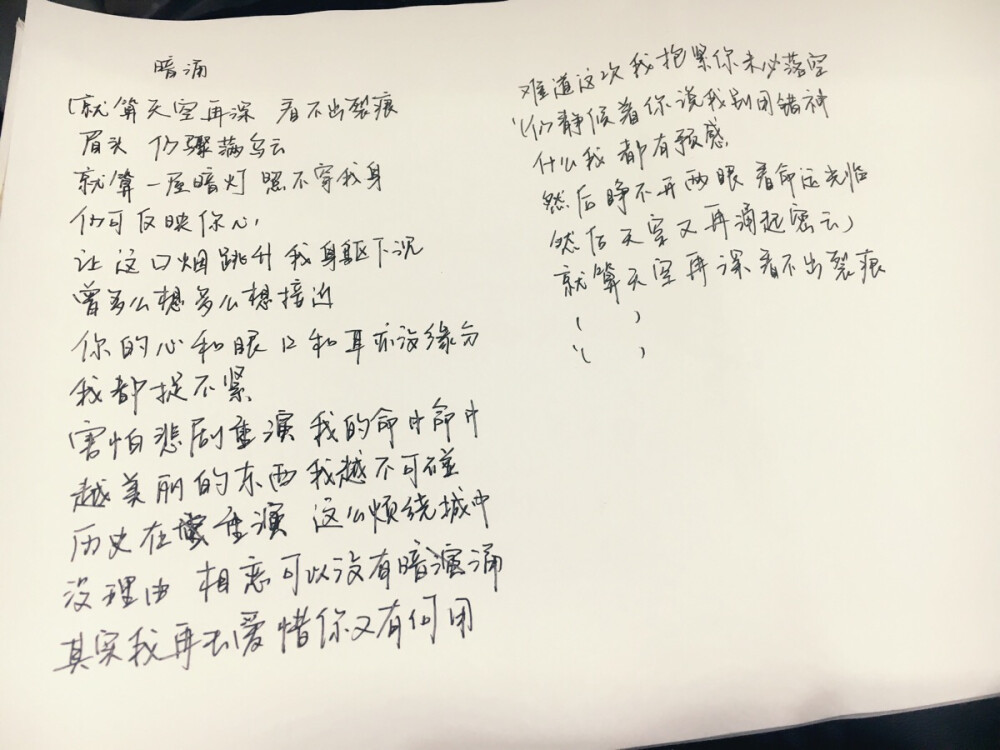 暗涌
(就算天空再深 看不出裂痕
眉头 仍骤满乌云
就算一屋暗灯 照不穿我身
仍可反映你心)
让这口烟跳升 我身躯下沉
曾多么想多么想接近
你的心和眼口和耳亦没缘分
我都捉不紧
害怕悲剧重演 我的命中命中
越美丽的东西我越不可碰
历史在重演 这么烦绕城中
没理由 相恋可以没有暗涌
其实我再去爱惜你又有何用
难道这次我抱紧你未必落空
"(仍静候着你说我别用错神
什么我都有预感
然后睁不开两眼 看命运光临
然后天空又再涌起密云)
就算天空再深 看不出裂痕
( )
"( )